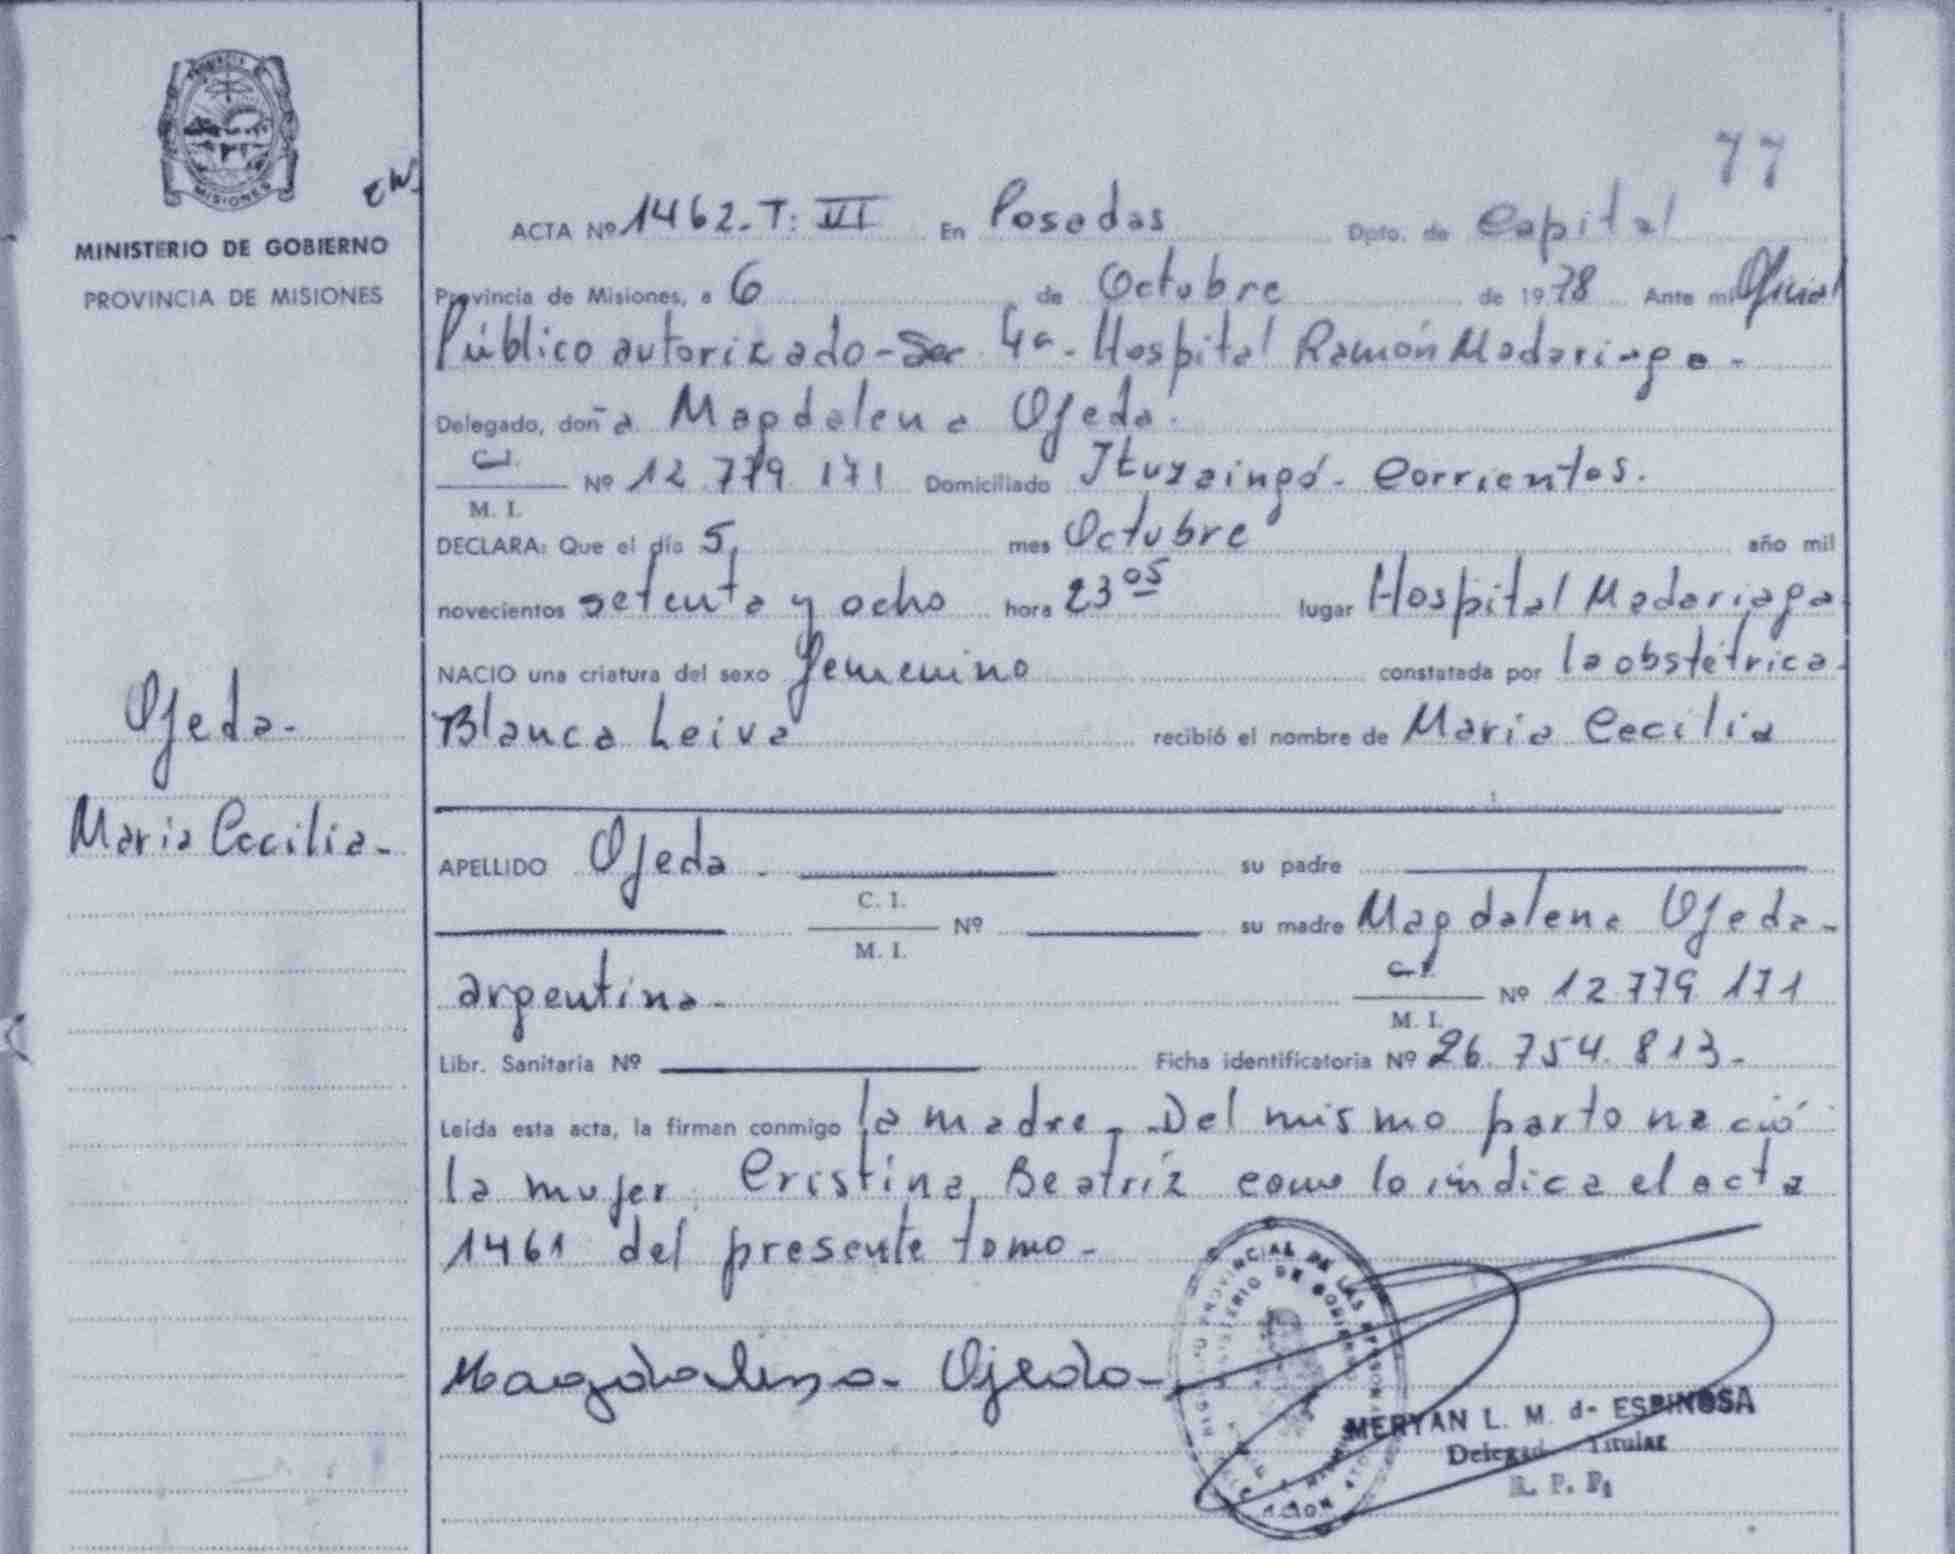 PROVINCIA DE
MISIONES
MINISTERIO DE GOBIERNO
PROVINCIA DE MISIONES
77
ACTA Nº 1462. T: VI En Posadas Dpto. de Capital
Provincia de Misiones, a 6 de Octubre de 1978 Ante mi Oficial
Público autorizado - Sec 4a. Hospital Ramón Madariaga -
Delegado, doña Magdalena Ojeda.
C.I.
M. I.
Nº 12.779.171 Domiciliado Ituzaingó - Corrientes.
DECLARA: Que el día 5, mes Octubre año mil
novecientos setenta y ocho hora 23 05 lugar Hospital Madariaga
NACIO una criatura del sexo femenino constatada por la obstétrica
Blanca Leiva recibió el nombre de Maria Cecilia
Ojeda -
Maria Cecilia -
APELLIDO Ojeda - su padre
C. I.
M. I.
Nº su madre Magdalena Ojeda -
argentina -
C.I.
M. I.
Nº 12.779.171
Libr. Sanitaria Nº Ficha identificatoria Nº 26.754.813 -
Leída esta acta, la firman conmigo la madre - Del mismo parto nació
la mujer, Cristina Beatríz como lo indica el acta
1461 del presente tomo -
Magdalena Ojeda -
MERYAN L. M. de ESPINOSA
Titular
R. P. P.